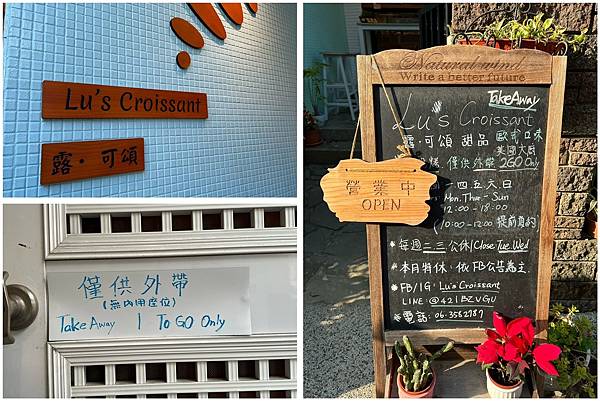 Lu's Croissant
露・可頌
僅供外帶
(無內用座位)
Take Away | To GO Only
Natural wind
Write a better future
TakeAway
Lu's Croissant
露・可頌 甜品 歐式口味
美國大廚
僅供外帶 2GO Only
營業中
OPEN
一四五六日
Mon. Thur. - Sun
12:00 - 18:00
(10:00-12:00 提前預約)
*每週二三公休/Close Tue. Wed
*本月特休,依FB公告為主.
*FB/IG: Lu's Croissant
LINE @421BZVGU
*電話: 06-3582787